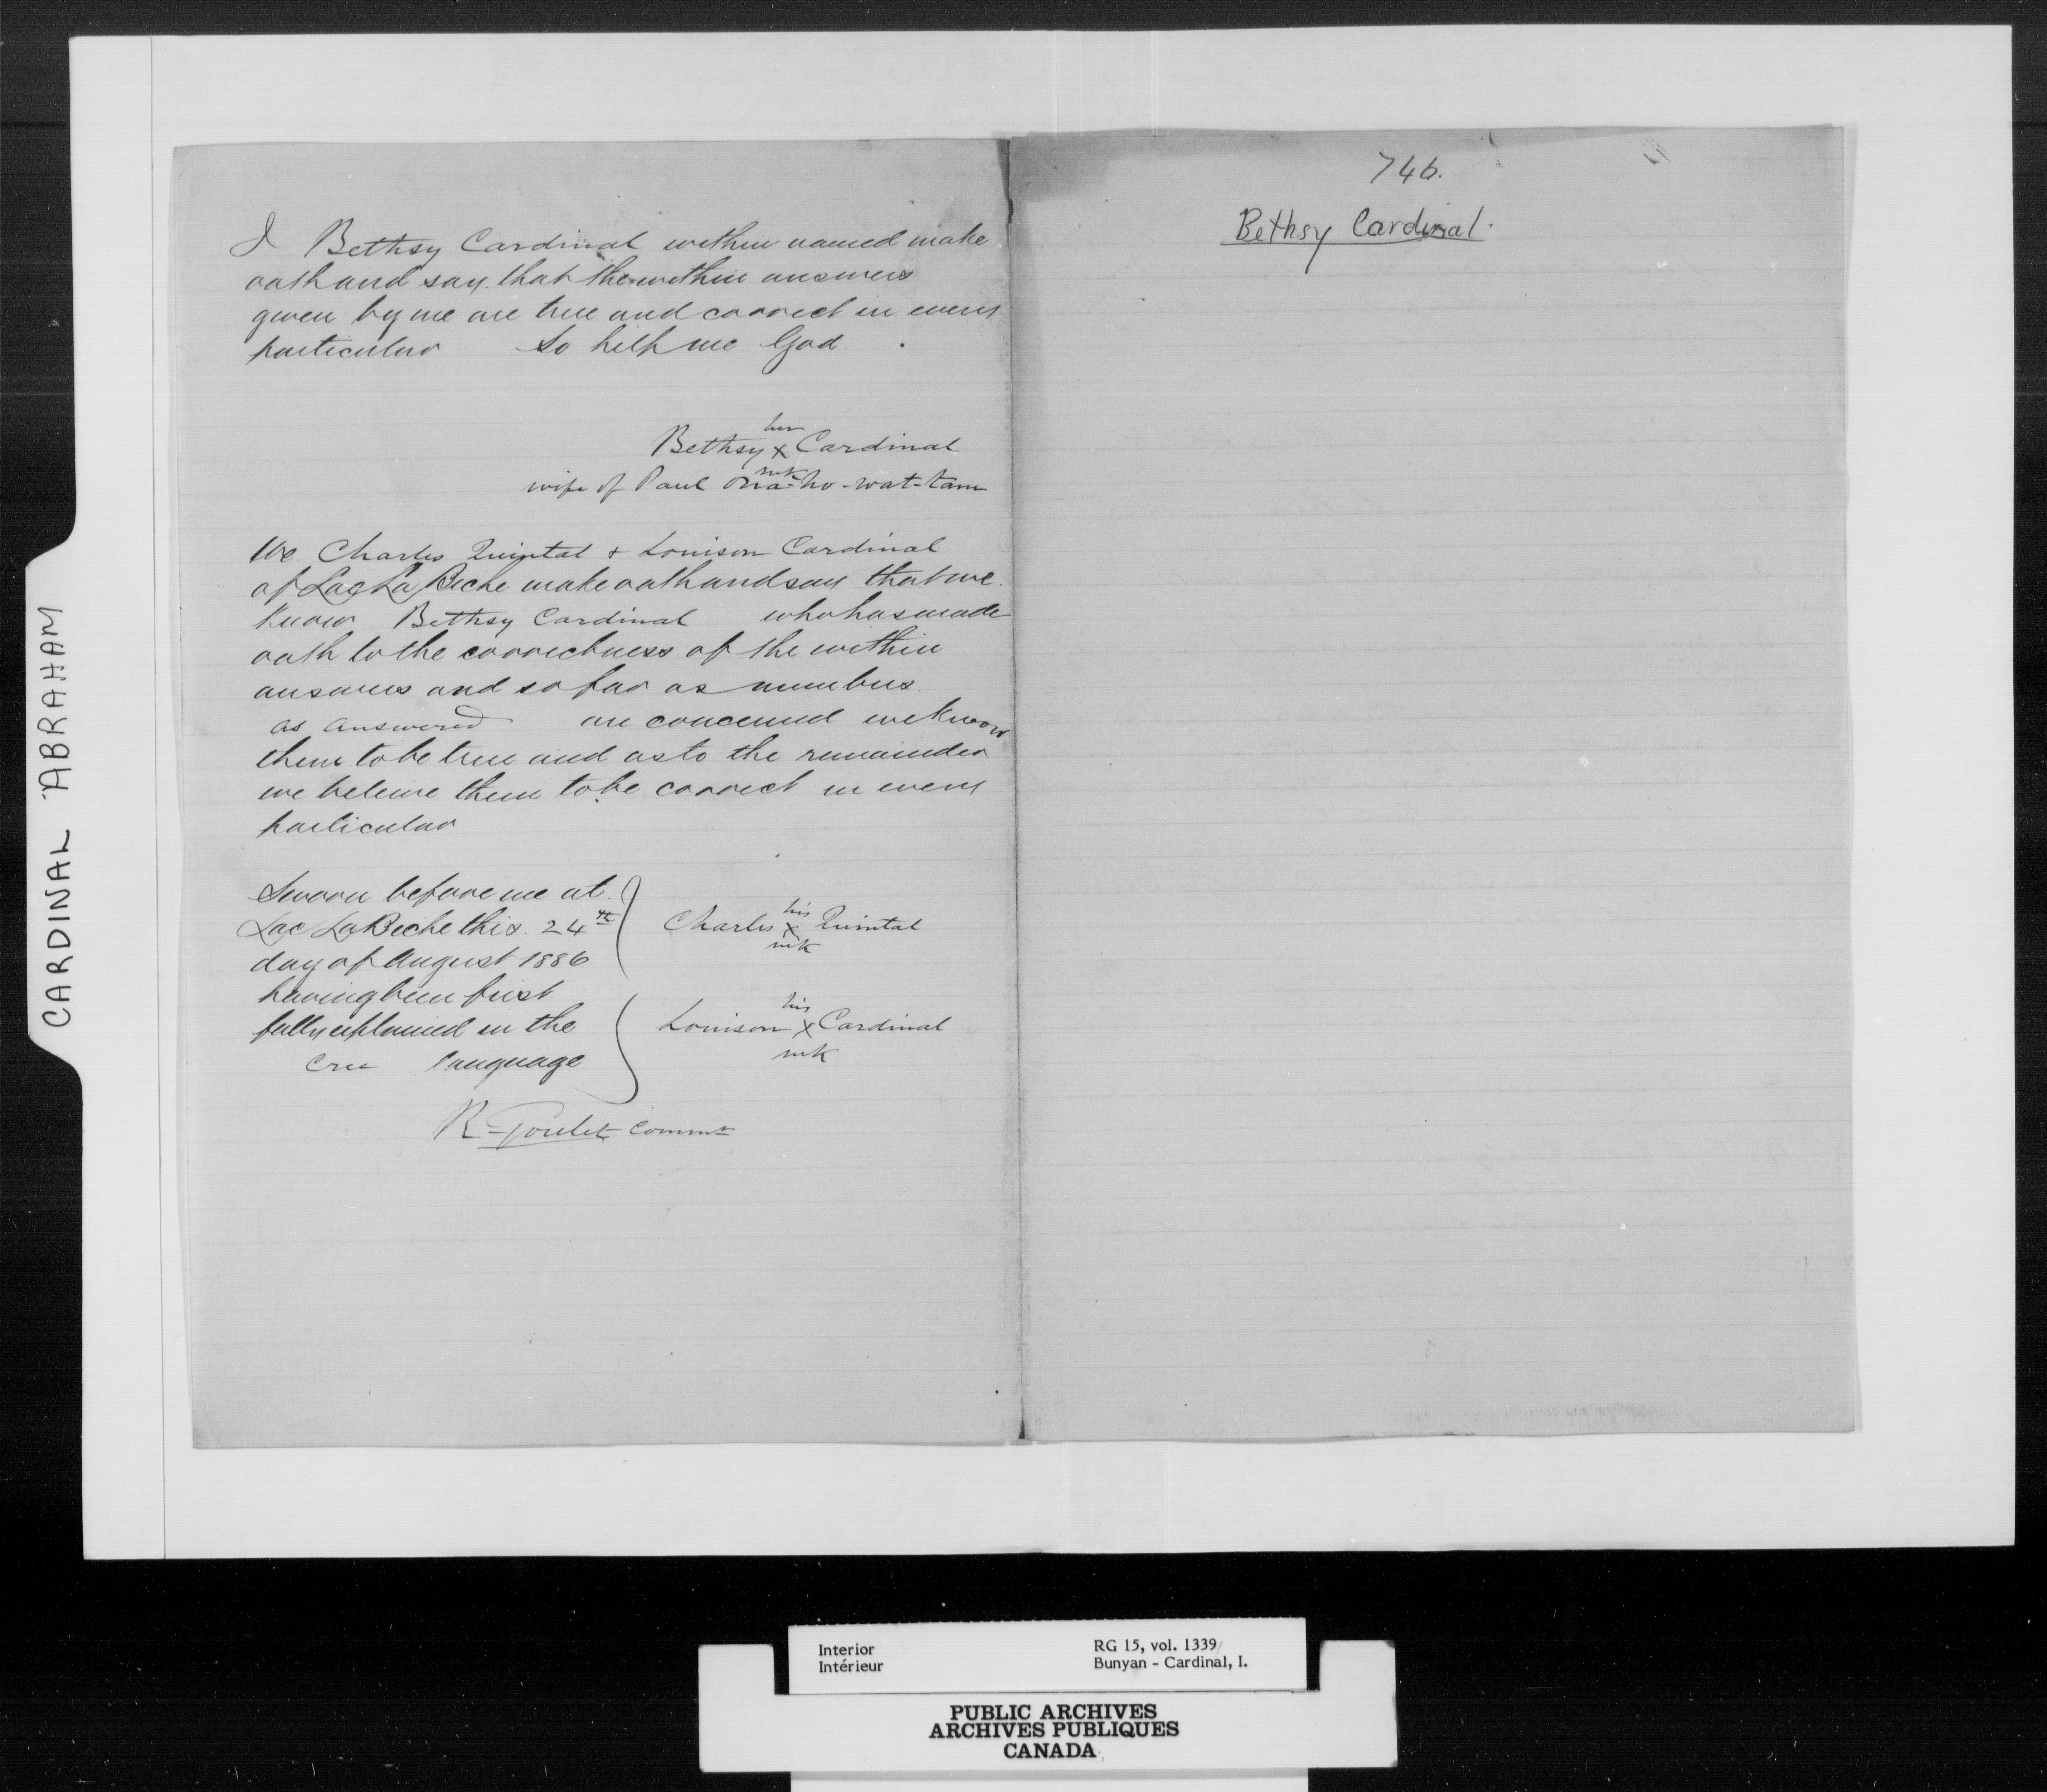 CARDINAL ABRAHAM
I Bethsy Cardinal within named make
oath and say that the within answers
given by me are true and correct in every
particular So help me God.
her
Bethsy x Cardinal
mk
wife of Paul Ma-ho-wat-tam
We Charles Quintal & Louison Cardinal
of Lac La Biche make oath and say that we
know Bethsy Cardinal who has made
oath to the correctness of the within
answers and so far as numbers
as answered are concerned we know
them to be true and as to the remainder
we beleive them to be correct in every
particular
Sworn before me at
Lac La Biche this 24th
day of August 1886
having been first
fully explained in the
Cree language
his
Charles x Quintal
mk
his
Louison x Cardinal
mk
R. Goulet Commr
746.
Bethsy Cardinal.
Interior
Intérieur
RG 15, vol. 1339
Bunyan - Cardinal, I.
PUBLIC ARCHIVES
ARCHIVES PUBLIQUES
CANADA